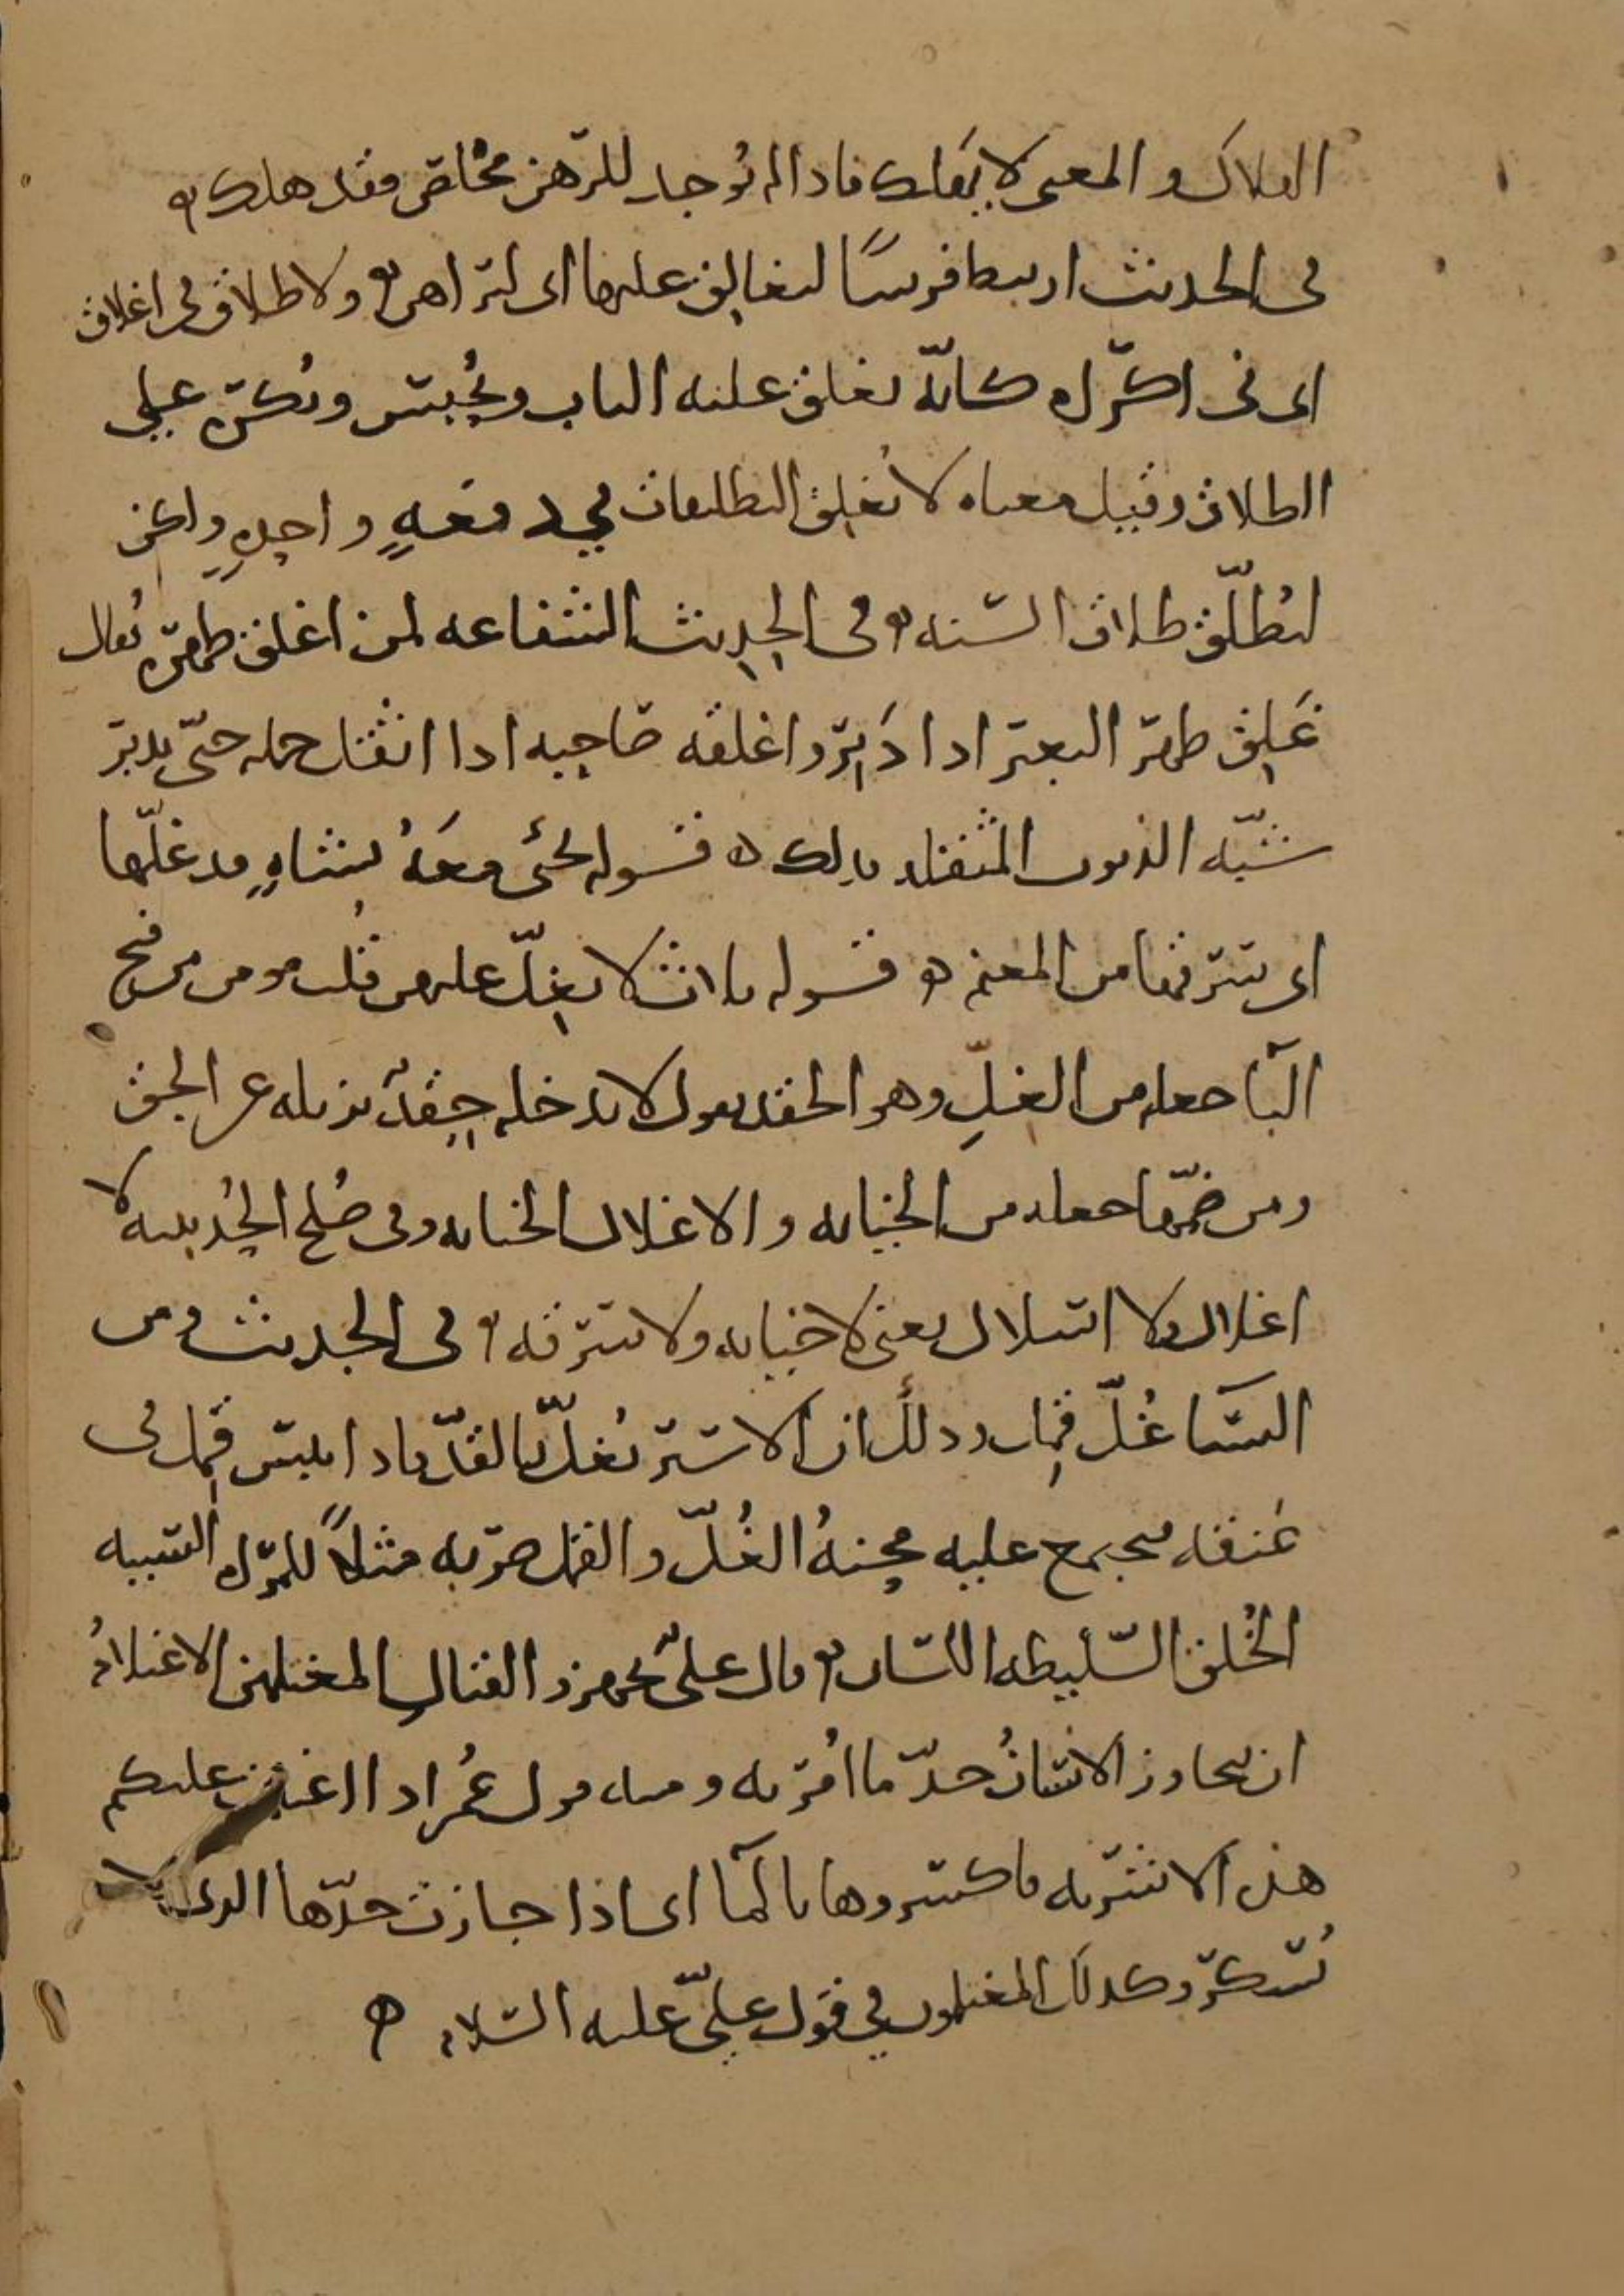 الهلاك والمعنى لا يهلك فاذا لم يوجد للرهن مخلص فقد هلك
في الحديث ارتبط فرسًا ليغالق عليها اى ليراهن ولا طلاق في اغلاق
اى في اكراه كانّه يغلق عليه الباب ويُحبس ويكره على
الطلاق وقيل معناه لا تُغلق التطليقات في دفعةٍ واحدةٍ ولكن
ليُطلّق طلاق السنه وفي الحديث الشفاعه لمن اغلق ظهره يقال
غَلِق ظهر البعير اذا دَبِرَ واغلقه صاحبه اذا اثقل حمله حتّى يدبر
شبّه الذنوب المثقله بذلك قوله يجئ معَهُ بشاةٍ قد غلّها
اى سرقها من المغنم قوله ثلاث لا يغلّ عليهن قلب مومن من فتح
اليا جعله من الغلِّ وهو الحقد يقول لا يدخله حِقدٌ يزيله عن الحق
ومن ضمّها جعله من الخيانه والاغلال الخيانه وفي صُلح الحُديبيه لا
اغلال ولا اسلال يعنى لا خيانه ولا سرقه وفي الحديث ومن
النسا غُلّ قمِل وذلك ان الاسير يُغلّ بالقدّ فاذا يبس قمل في
عنقه فيجتمع عليه محنةُ الغُلّ والقمل ضربه مثلاً للمراه السيئه
الخُلق السّليطه اللسان وقال علىّ تجهزوا لقتال المغتلمين الاغتلامُ
ان يجاوز الانسانُ حدّ ما اُمر به ومنه قول عُمر اذا اغتلمت عليكم
هذه الاشربه فاكسروها بالما اى اذا جازت حدّها الذى لا
يُسكر وكذلك المغتلمون في قول علىّ عليه السلام